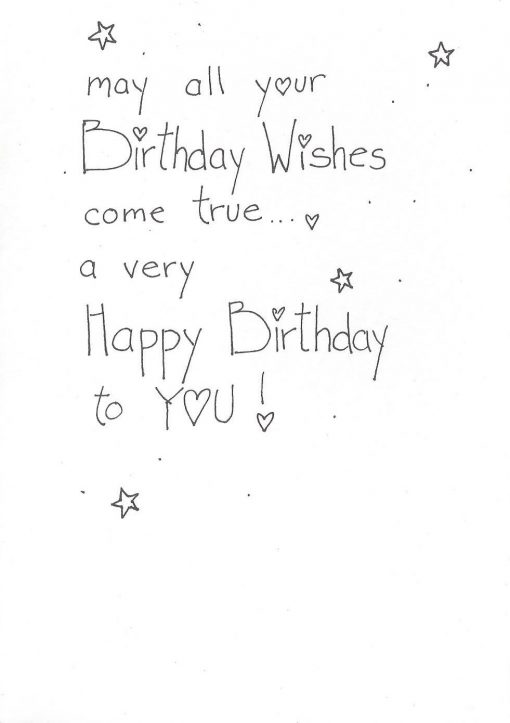 may all your
Birthday Wishes
come true...
a very
Happy Birthday
to YOU!